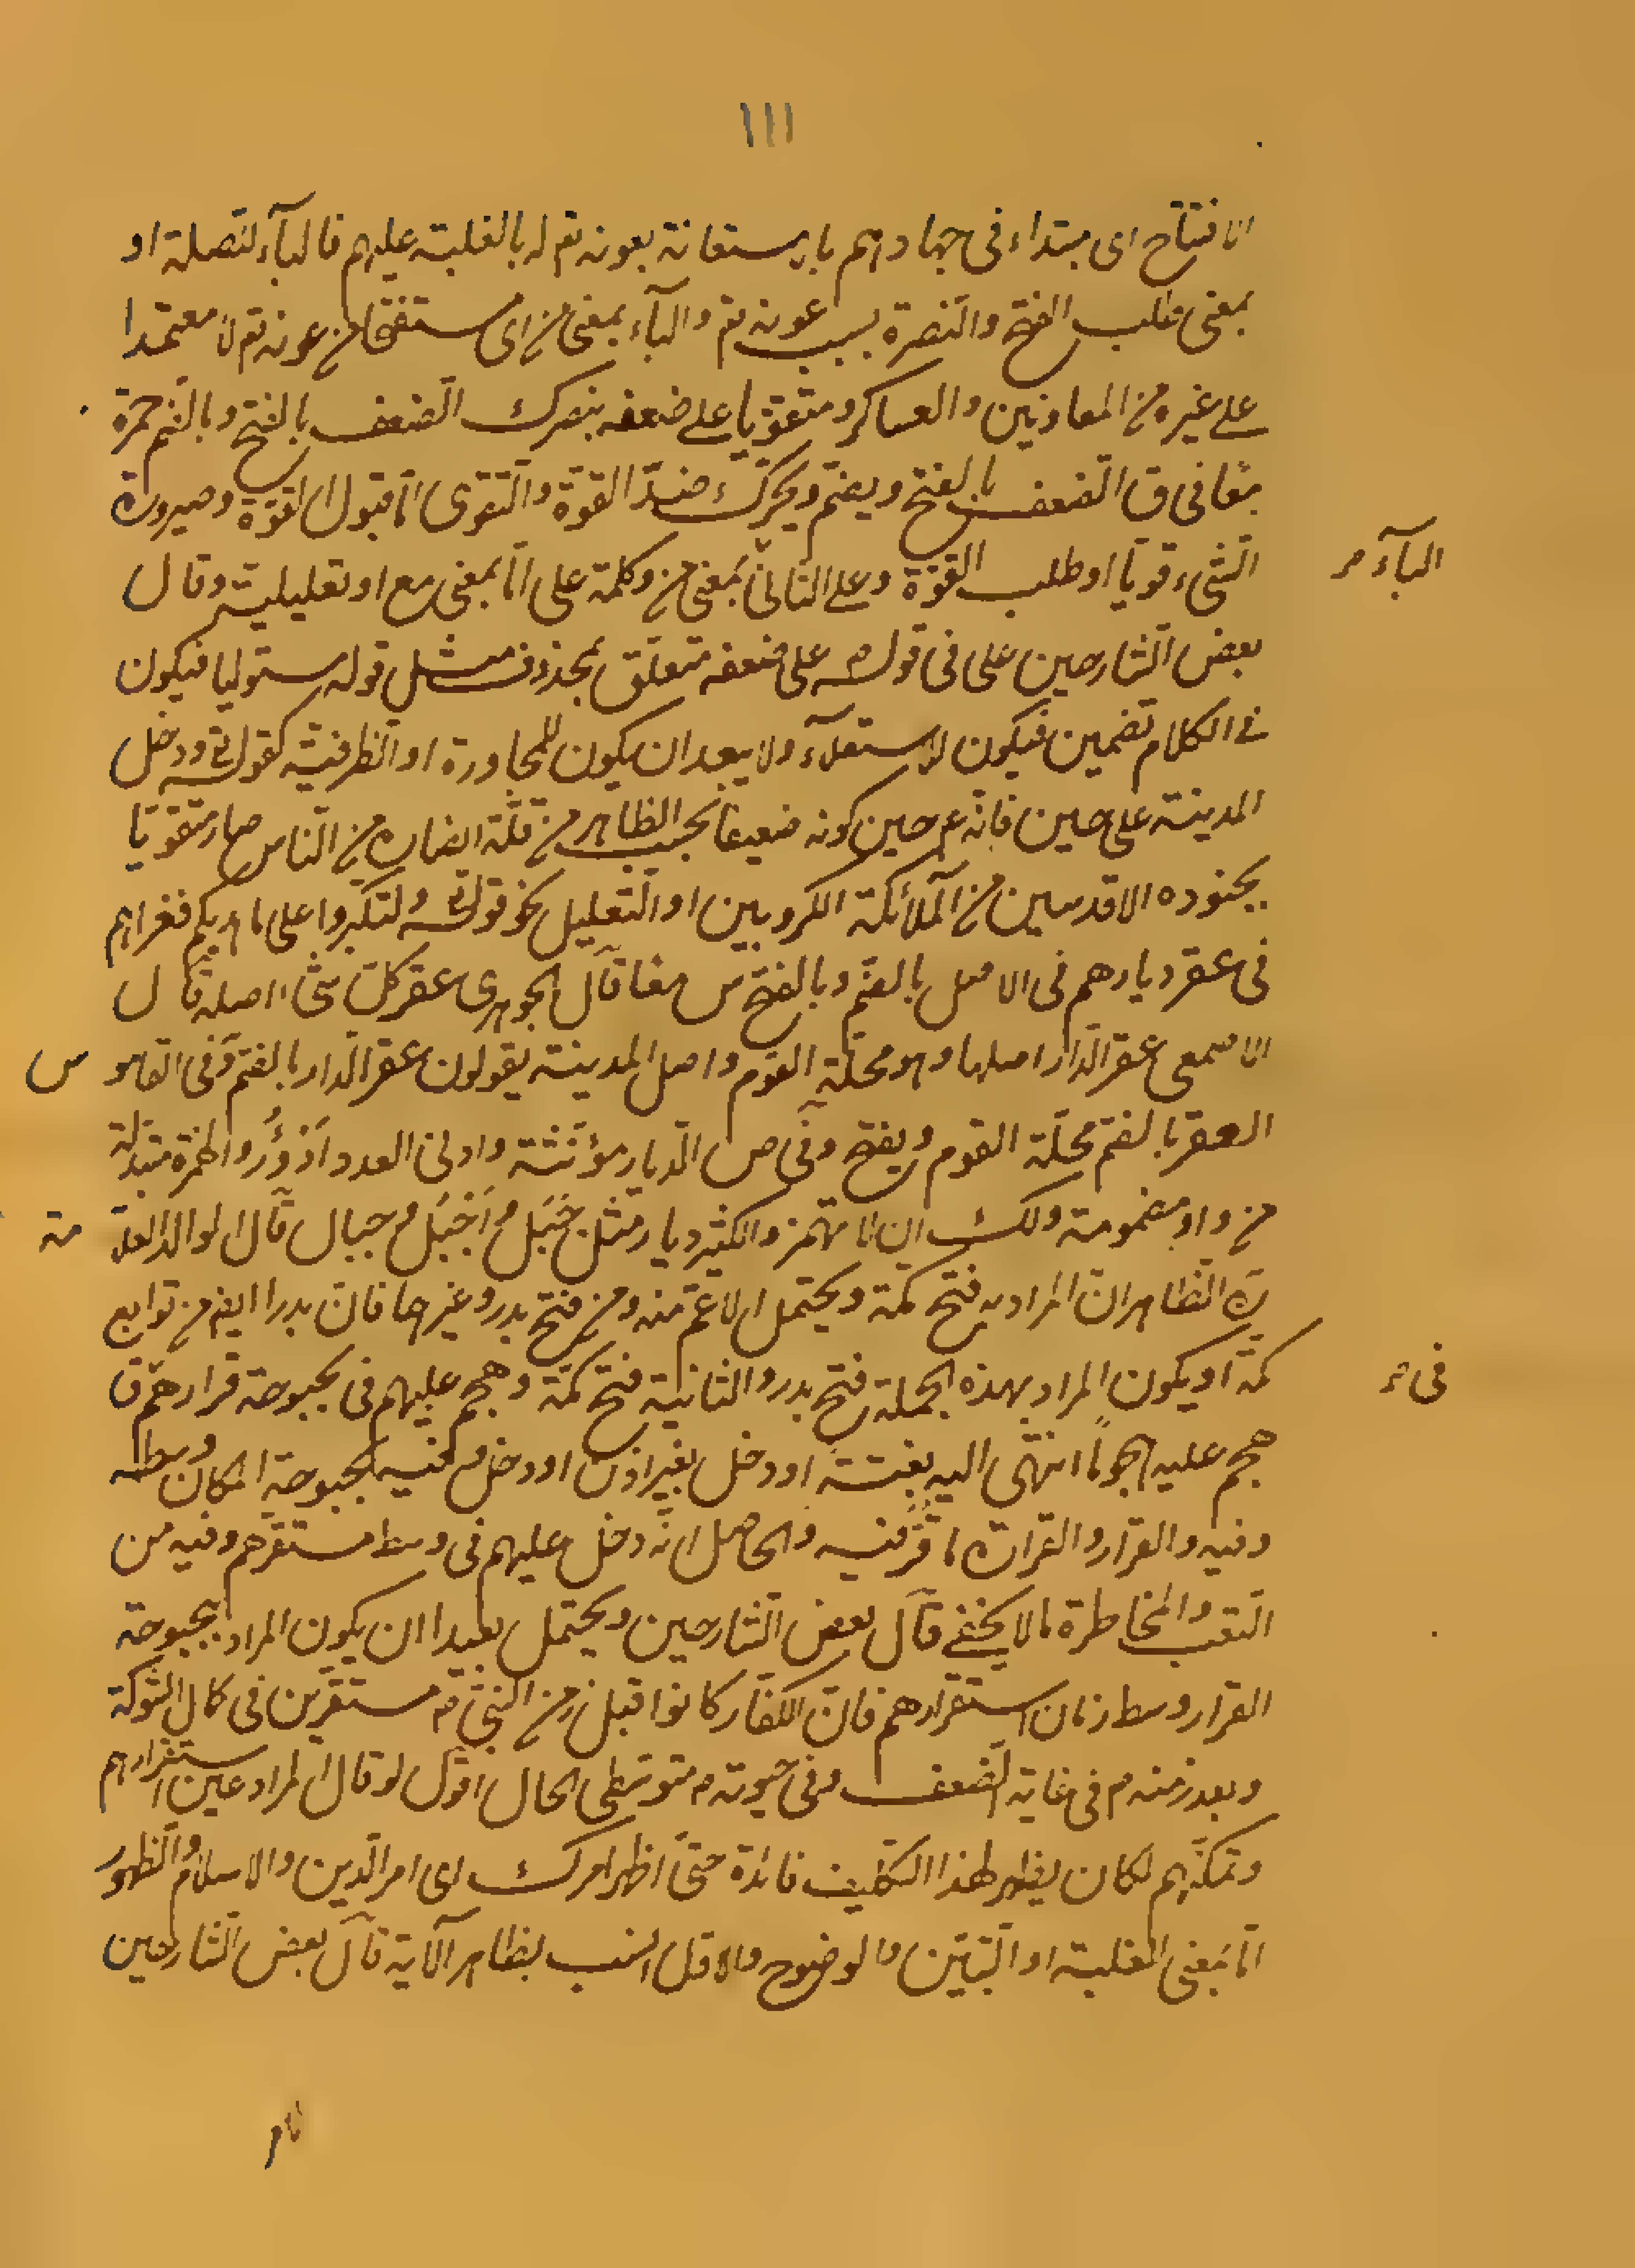 ١١١
الافتتاح اى مبتداء فى جهادهم باستعانة بعونه تم له بالغلبة عليهم فالباء للصلة او
بمعنى طلب الفتح والنصرة بسبب عونه تم والبآء بمعنى من اى مستفتحا من عونه تم لا معتمدا
على غيره من المعاونين والعساكر ومتقويا على ضعفه بنصرك الضعف بالفتح وبالضم حمزة
معا فى ق الضعف بالفتح ويضم ويحرك ضدّ القوة والتقوى امّا قبول القوة وصيرورة
البآء م
الشىء قويا او طلب القوة وعلى الثانى بمعنى من وكلمة على امّا بمعنى مع او تعليلية وقال
بعض الشارحين على فى قوله على ضعفه متعلق بمحذوف مثل قوله مستوليا فيكون
فى الكلام تضمين فيكون للاستعلآء ولا يبعد ان يكون للمجاورة او الظرفية كقوله تع ودخل
المدينة على حين فانّه ع حين كونه ضعيفا بحسب الظاهر من قلة انصاره من الناس صار متقويا
بجنوده الاقدسين من الملائكة الكروبين او التعليل نحو قوله تع ولتكبروا على ما هديكم فغزاهم
فى عقر ديارهم فى الاصل بالضم وبالفتح س معا قال الجوهرى عقر كلّ شىء اصله قال
الاصمعى عقر الدّار اصلها وهو محلّة القوم واصل المدينة يقولون عقر الدار بالضم وفى القامو س
العقر بالضم محلّة القوم ويفتح وفى ص الديار مؤنثة وادنى العدد اَدْؤُر والهمزة مبتدلة
من واو مضمومة ولك ان لا تهمز والكثير ديار مثل جَبَل م اَجْبُل م جبال قال الوالد العلا مة
رة الظاهر انّ المراد به فتح مكة ويحتمل الاعم منه ومن فتح بدر وغيرها فانّ بدرا ايضا من توابع
فى ء
مكة او يكون المراد بهذه الجملة فتح بدر والثانية فتح مكة وهجم عليهم فى بحبوحة قرارهم ق
هجم عليه هجوماً انتهى اليه بغتة او دخل بغير اذن او دخل م فيه بحبوحة المكان وسطه
وفيه والقرار والقرارة ما قرّ فيه والحاصل انّه دخل عليهم فى وسط مستقرّهم وفيه من
التعب والمخاطرة ما لا يخفى قال بعض الشارحين ويحتمل بعيدا ان يكون المراد ببحبوحة
القرار وسط زمان استقرارهم فانّ الكفار كانوا قبل زمن النبىّ م مستقرّين فى كمال الشوكة
وبعد زمنه م فى غاية الضعف وفى حيوته م متوسطى الحال اقول لو قال المراد عين استقرارهم
وتمكنهم لكان يظهر لهذا التكليف فائدة حتى اظهر امرك اى امر الدين والاسلام والظهور
امّا بمعنى الغلبة او التبيّن والوضوح والاول انسب بظاهر الآية قال بعض الشارحين